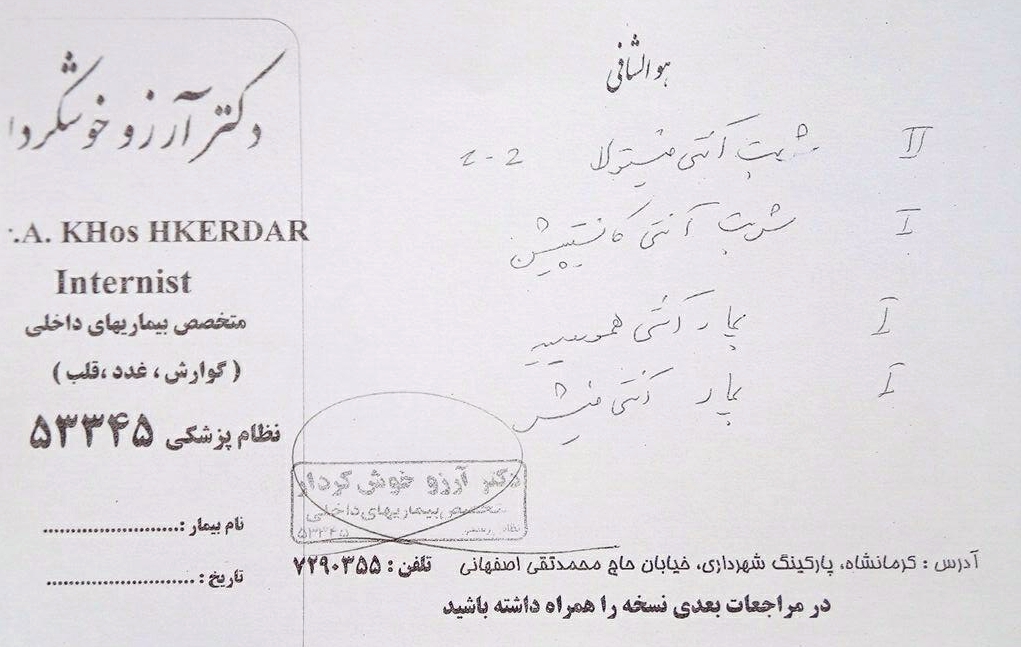 هوالشافی
II شربت آنتی فیستولا 2-2
I شربت آنتی کانستیپیشن
I پماد آنتی هموروئید
I پماد آنتی فیشر
دکتر آرزو خوشکردا
.A. KHos HKERDAR
Internist
متخصص بیماریهای داخلی
( گوارش ، غدد ،قلب )
نظام پزشکی ۵۳۳۴۵
نام بیمار :........................
تاریخ : ...........................
دکتر آرزو خوش کردار
متخصص بیماریهای داخلی
۵۳۳۴۵
آدرس : کرمانشاه، پارکینگ شهرداری، خیابان حاج محمدتقی اصفهانی تلفن : ۷۲۹۰۳۵۵
در مراجعات بعدی نسخه را همراه داشته باشید